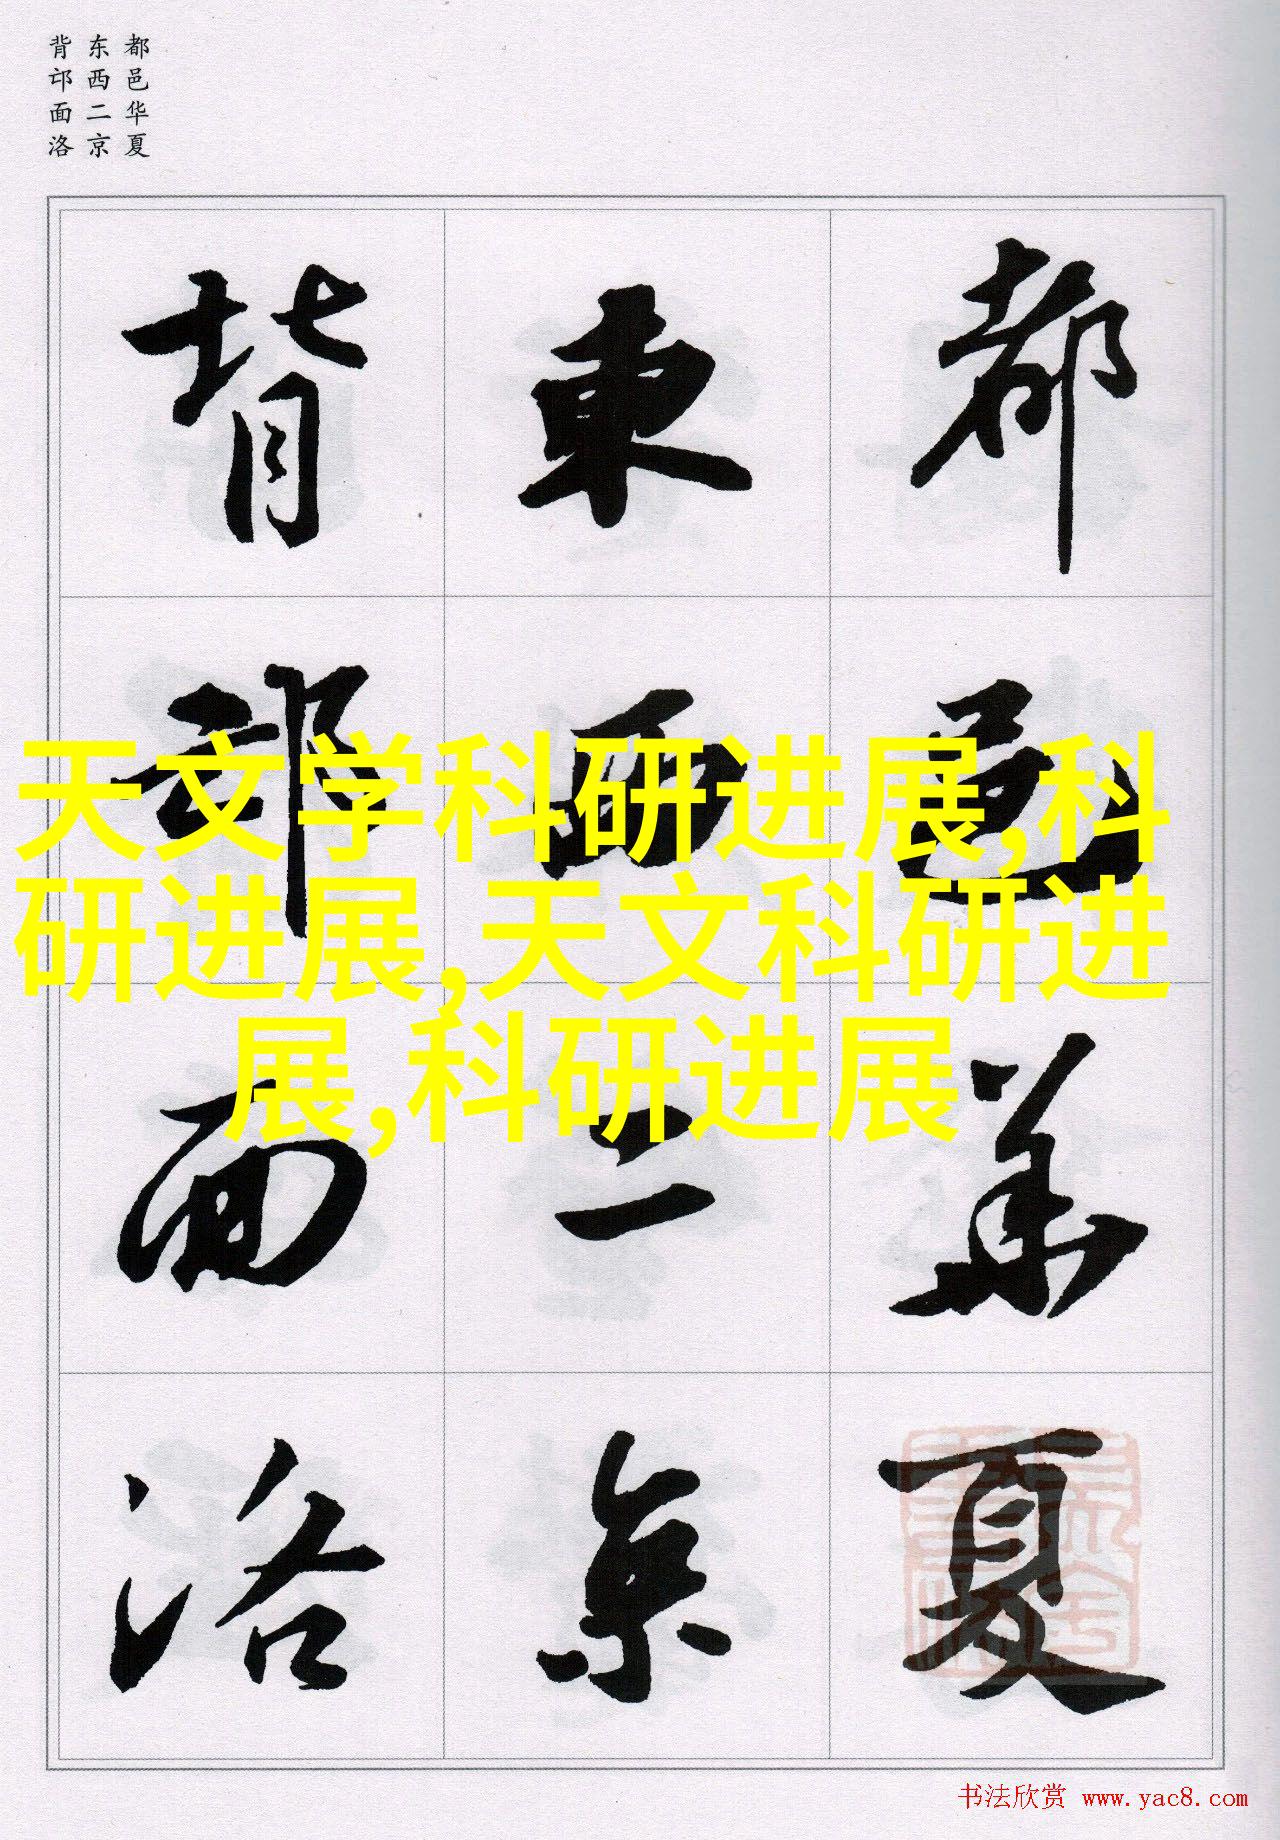 都邑华夏
东西二京
背邙面洛
都邑華夏
東西二京
背邙面洛
天文学科研进展,科
研进展,天文科研进
展,科研进展
书法欣赏 www.yac8.com